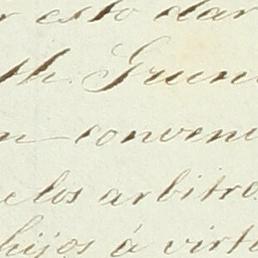 esto dar
th. Grun
n conveni
los arbitro
hijos á virtu